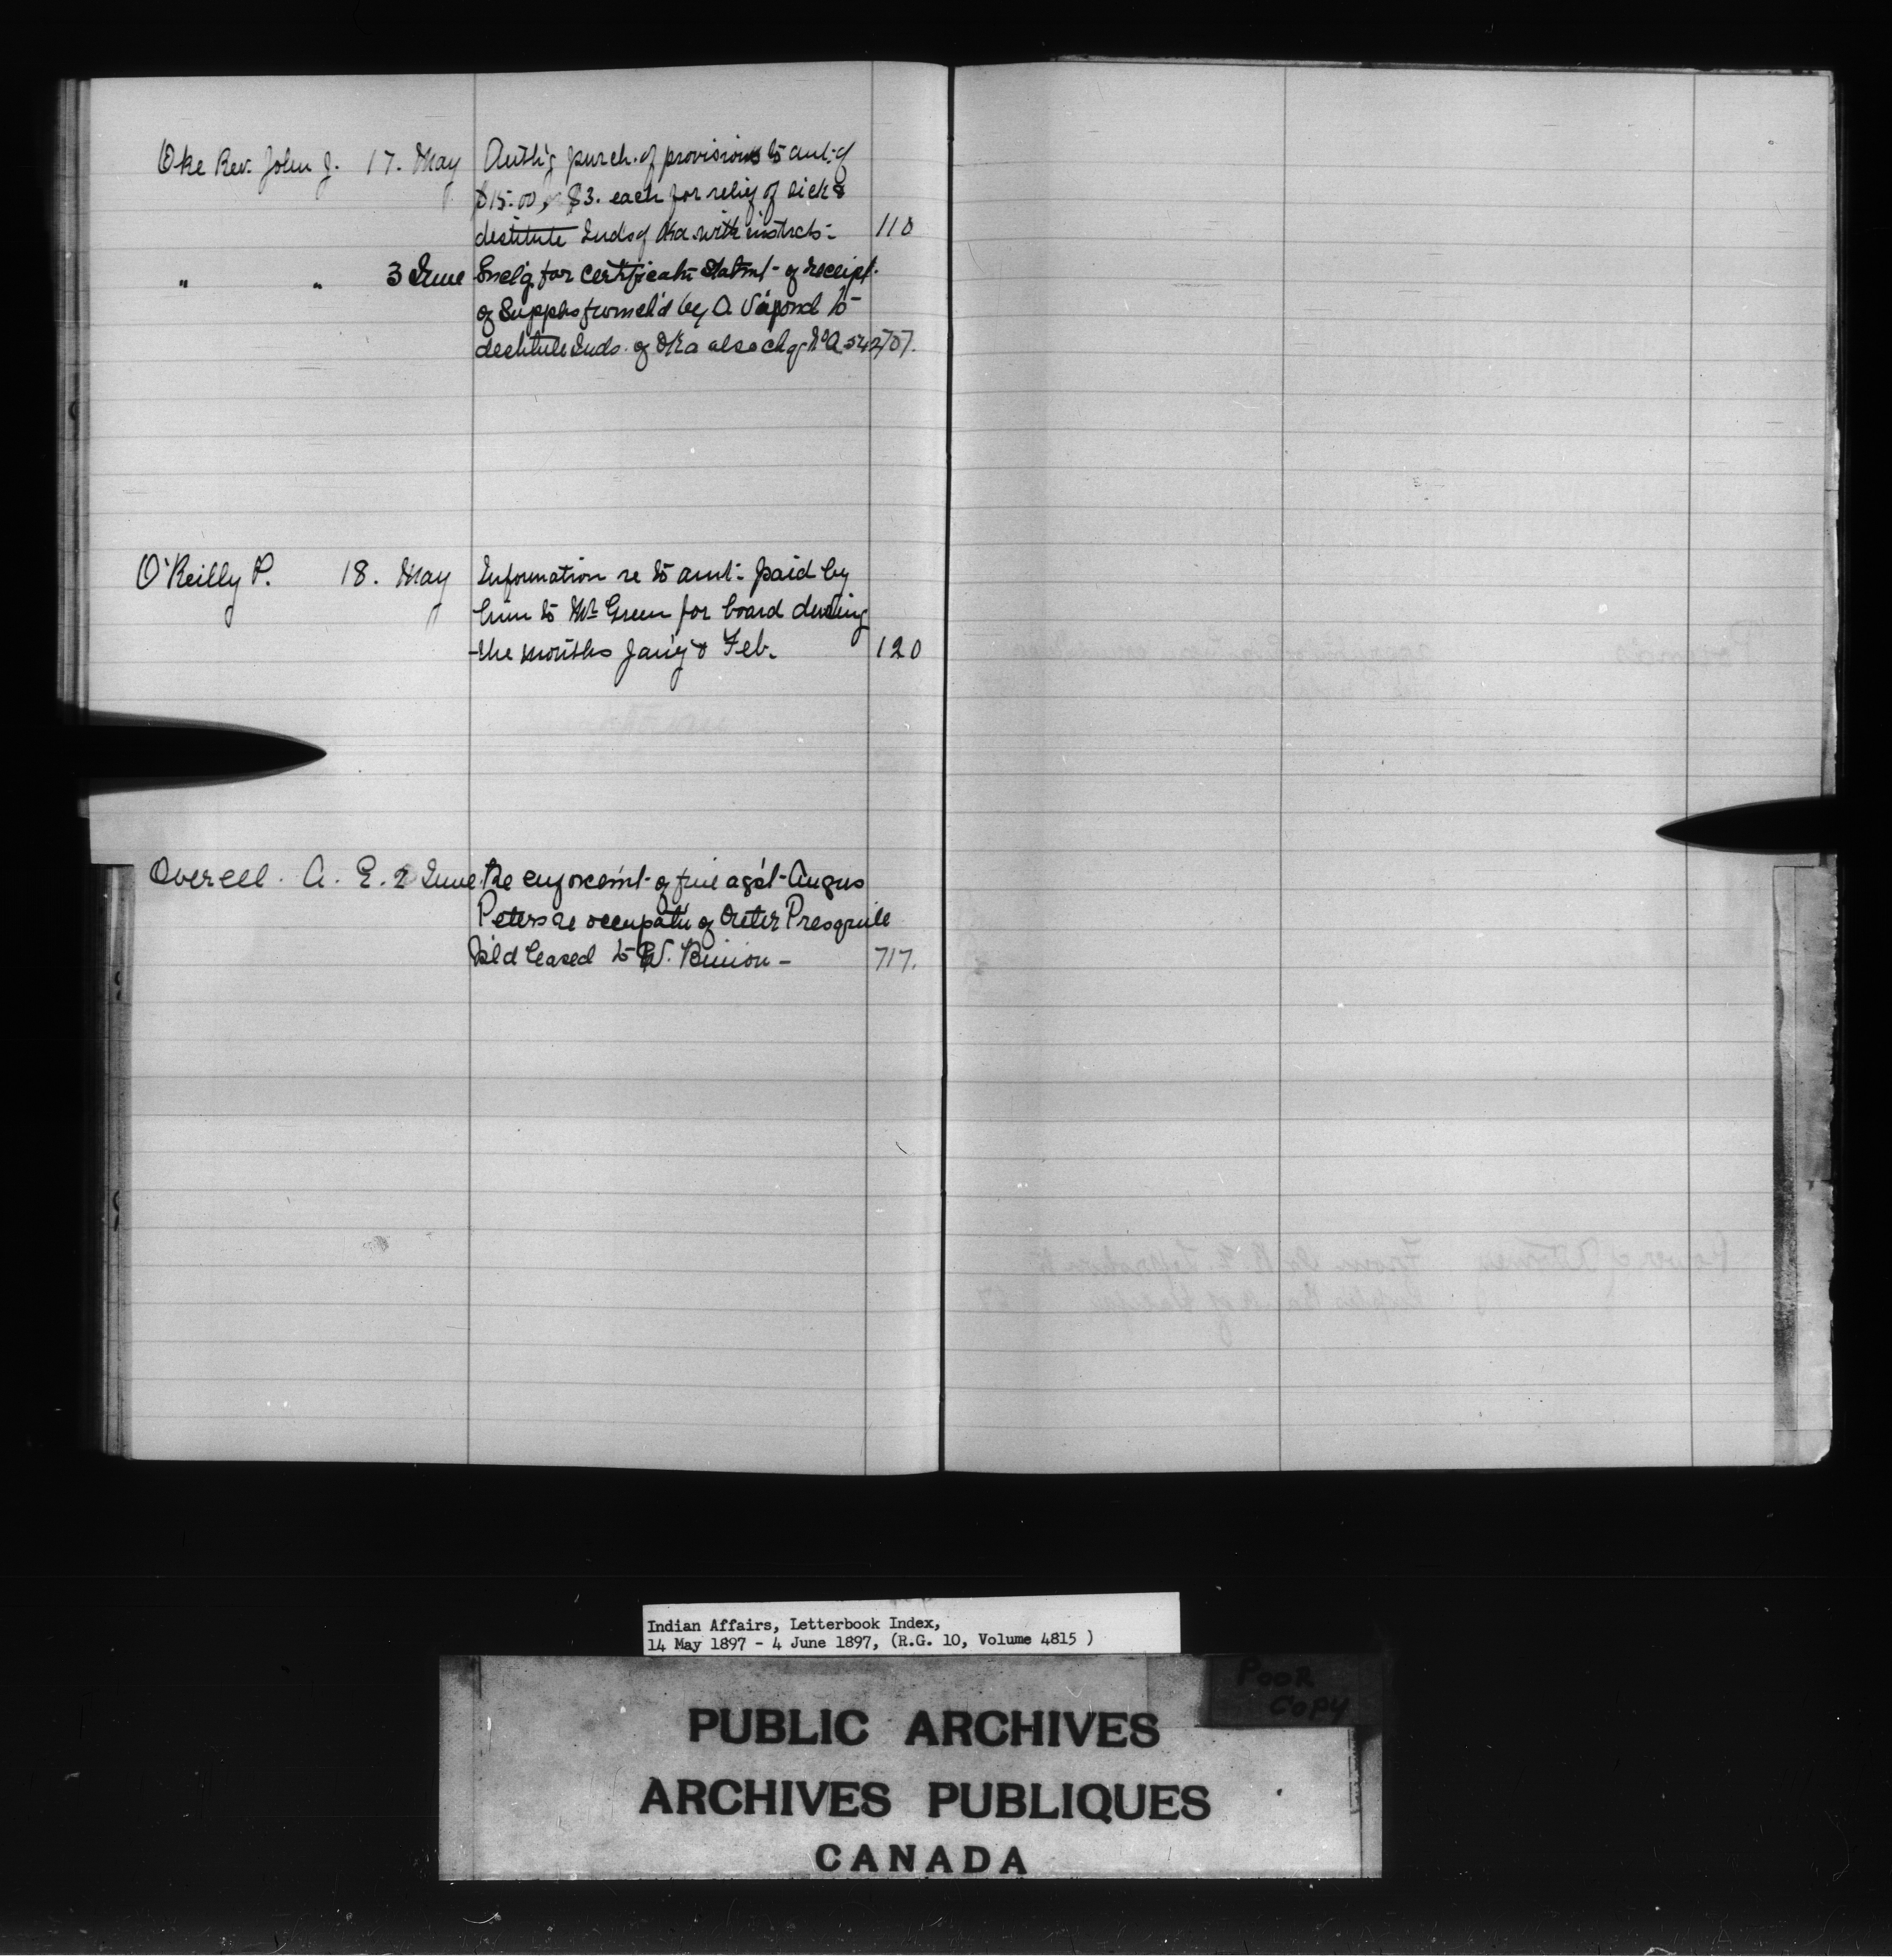 Oke Rev. John J. 17. May Auth'g purch. of provisions to amt. of
$15.00, $3. each for relief of sick &
destitute Inds of Oka with instructs. 110
" " 3 June Encl'g for certificate Statmt of receipt
of Supplies furnish'd by A. Vipond to
destitute Inds. of Oka also chq. No A 542 707.
O'Reilly P. 18. May Information re to amt. paid by
him to Mr Green for board during
the months Jan'y & Feb. 120
Overell A. E. 2 June Re enforcem't of fine ag'st Angus
Peters re occupat'n of Outer Presquile
Isl'd leased to W. Binion — 717.
Indian Affairs, Letterbook Index,
14 May 1897 - 4 June 1897, (R.G. 10, Volume 4815 )
POOR
COPY
PUBLIC ARCHIVES
ARCHIVES PUBLIQUES
CANADA